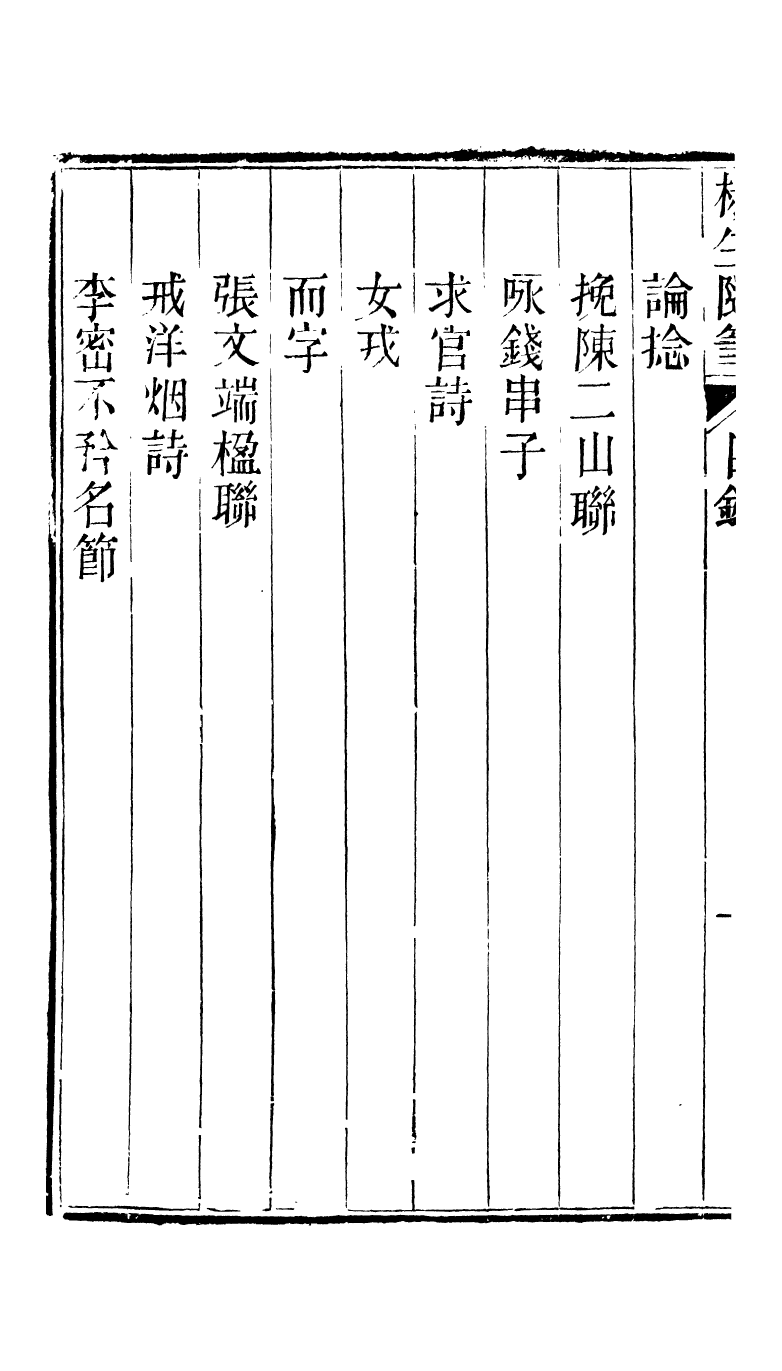 論捻
挽陳二山聯
咏錢串子
求官詩
女戎
而字
張文端楹聯
戒洋烟詩
李密不矜名節